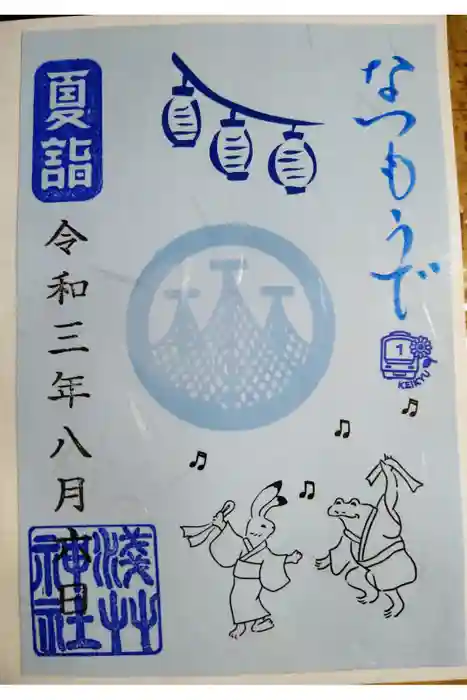 なつもうで
1
KEIKYU
夏詣
令和三年八月六日
淺草神社